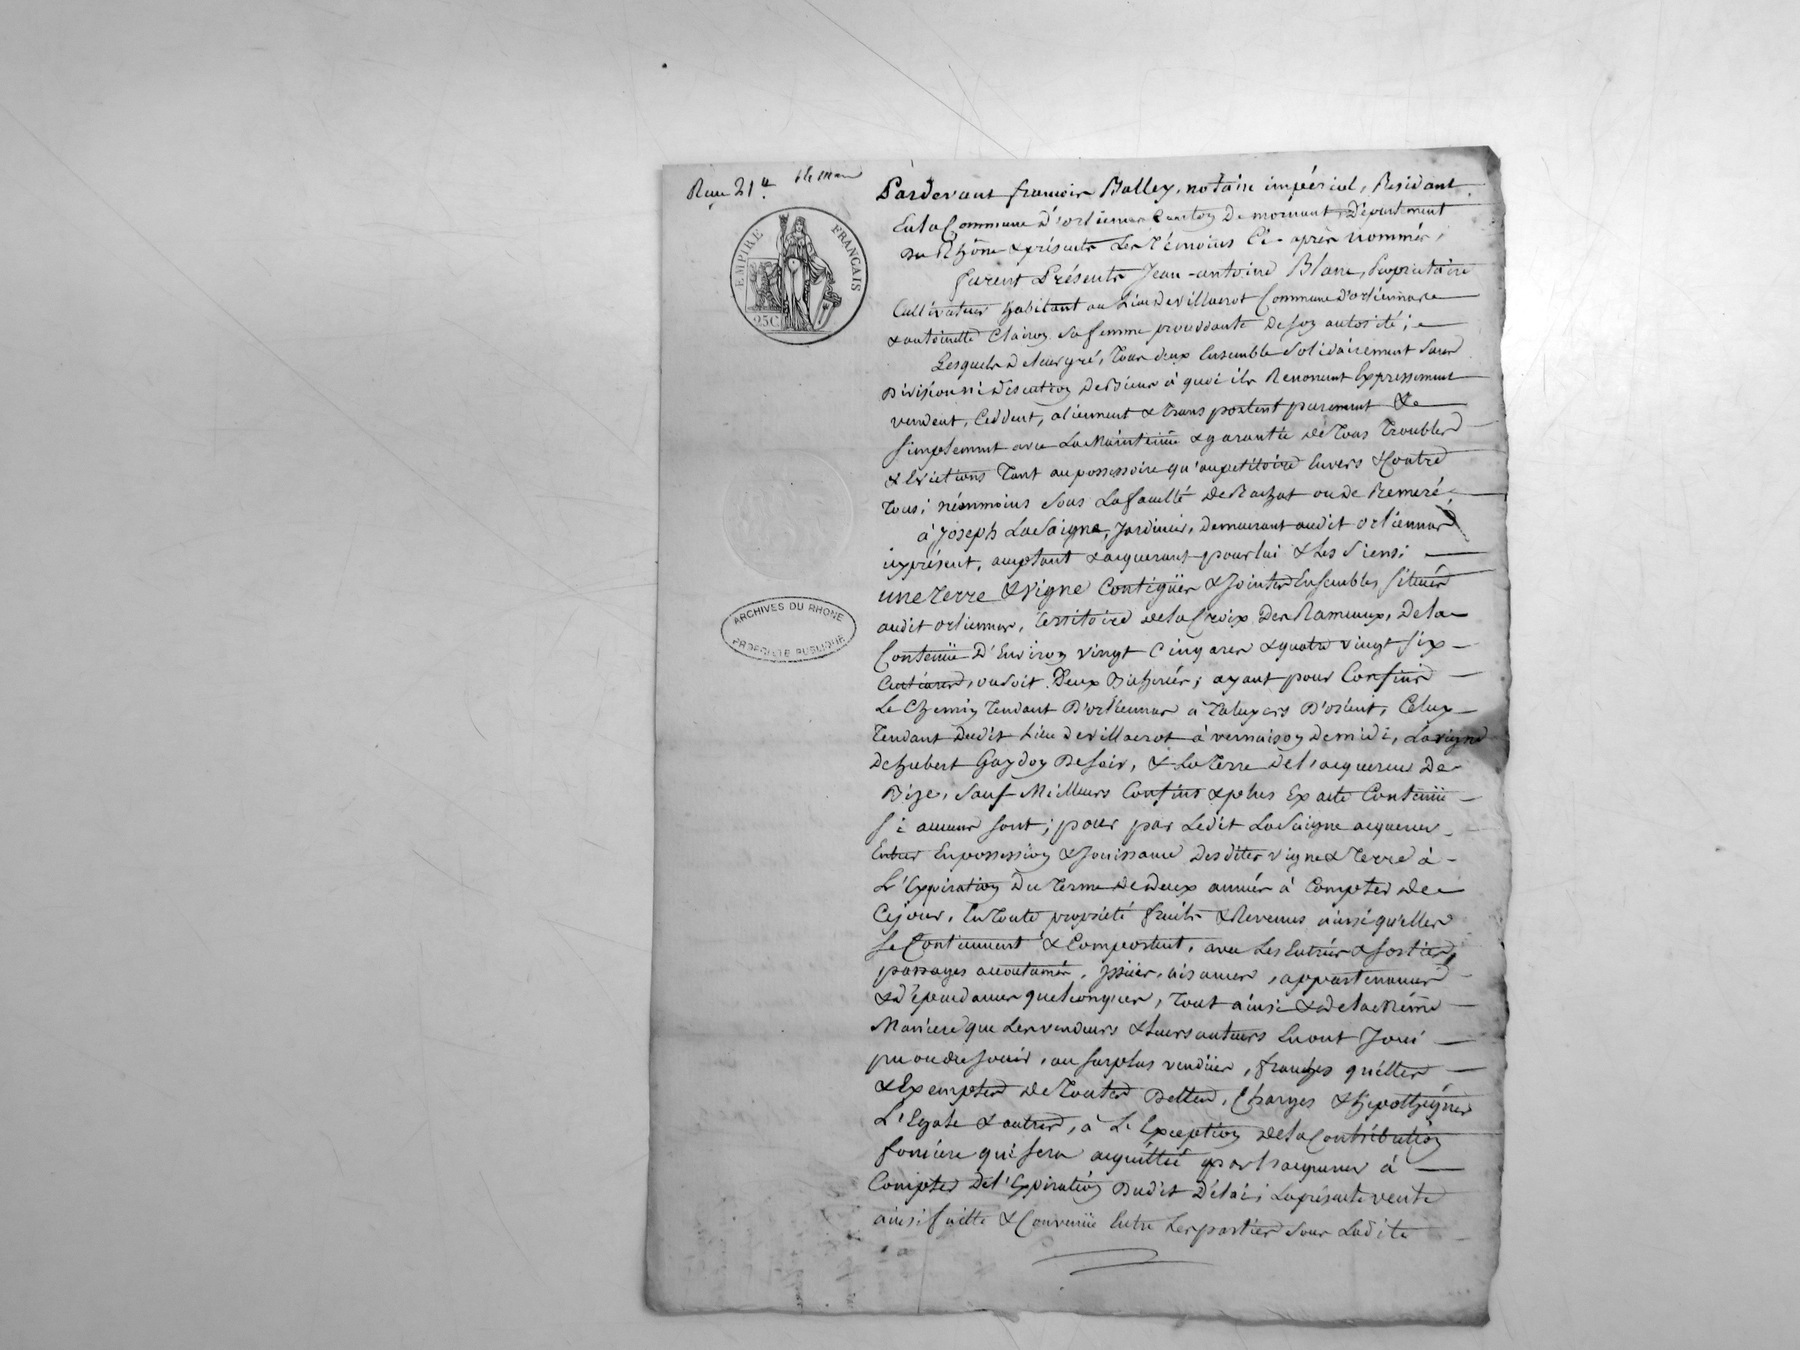 Rme 21e
EMPIRE FRANÇAIS
25C
ARCHIVES DU RHONE
PROPRIÉTÉ PUBLIQUE
Pardevant francois Balley, notaire impérial, Résidant
En la Commune d'orliennas Canton De mornant, Département
Du Rhône & présents Les Témoins Ci-après nommés;
furent Présents Jean-antoine Blanc, Propriétaire
Cultivateur habitant au Lieu de villaerot Commune d'orliennas
& antoinette Clairon sa femme procédante De son autorité;
Lesquels De leur gré, Tous deux Ensemble Solidairement Sans
Division ni discution De Bieux à quoi ils Renoncent Expressement
vendent, Ceddent, alienent & transportent purement &
simplement avec La Maintenüe & garantie de Tous Troubles
& Evictions Tant au possessoire qu'au petitoire Envers & Contre
Tous; néanmoins Sous La faculté de Rachat ou de Remeré;
à Joseph LaSaigne, Jardinier, demeurant audit orliennas
icy présent, acceptant & acquerant pour lui & Les Siens;
une Terre & vigne Contigües & Jointes Ensembles, situées
audit orliennas, Territoire de la Croix Des Rameaux, De la
Contenüe D'Environ vingt Cinq ares & quatre vingt six
Centiares, ou soit Deux Bicherées; ayant pour Confins
Le Chemin Tendant D'orliennas à Taluyers D'orient, Celuy
Tendant Dudit Lieu de villaerot à vernaison De midi, La vigne
De hubert Gaydon De soir, & La Terre de l'acquereur De
Bize, Sauf Meilleurs Confins & plus Exacte Contenüe
si aucuns sont; pour par Ledit LaSaigne acquereur
Entrer En possession & Jouissance Desdites vigne & Terre à
L'Expiration Du Terme De deux années à Compter de
Ce jour, En Toute propriété fruits & Revenus ainsi qu'elles
se Contiennent & Comportent, avec Les Entrées & sorties,
passages accoutumés, Issües, aisances, appartenances
& dépendances quelconques, Tout ainsi & de la Même
Maniere que Les vendeurs & Leurs auteurs En ont Joui
pu ou du Jouir, au surplus vendües, franches quittes
& Exemptes de Toutes Dettes, Charges & hipothèques
L'Egale & autres, à L'Exception de la Contribution
fonciere qui sera acquittée par L'acquereur à
Compter De l'Expiration Dudit Délai; La présente vente
ainsi faitte & Convenüe Entre Les parties sous Ladite